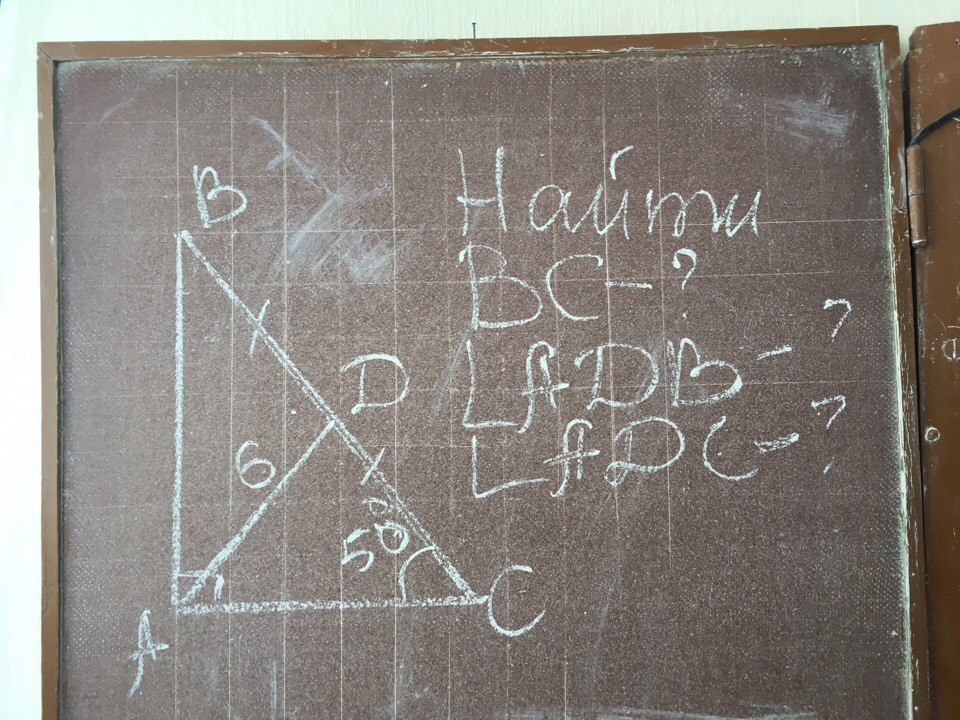 B
Найти
BC - ?
∠ADB - ?
∠ADC - ?
D
6
50°
A
C